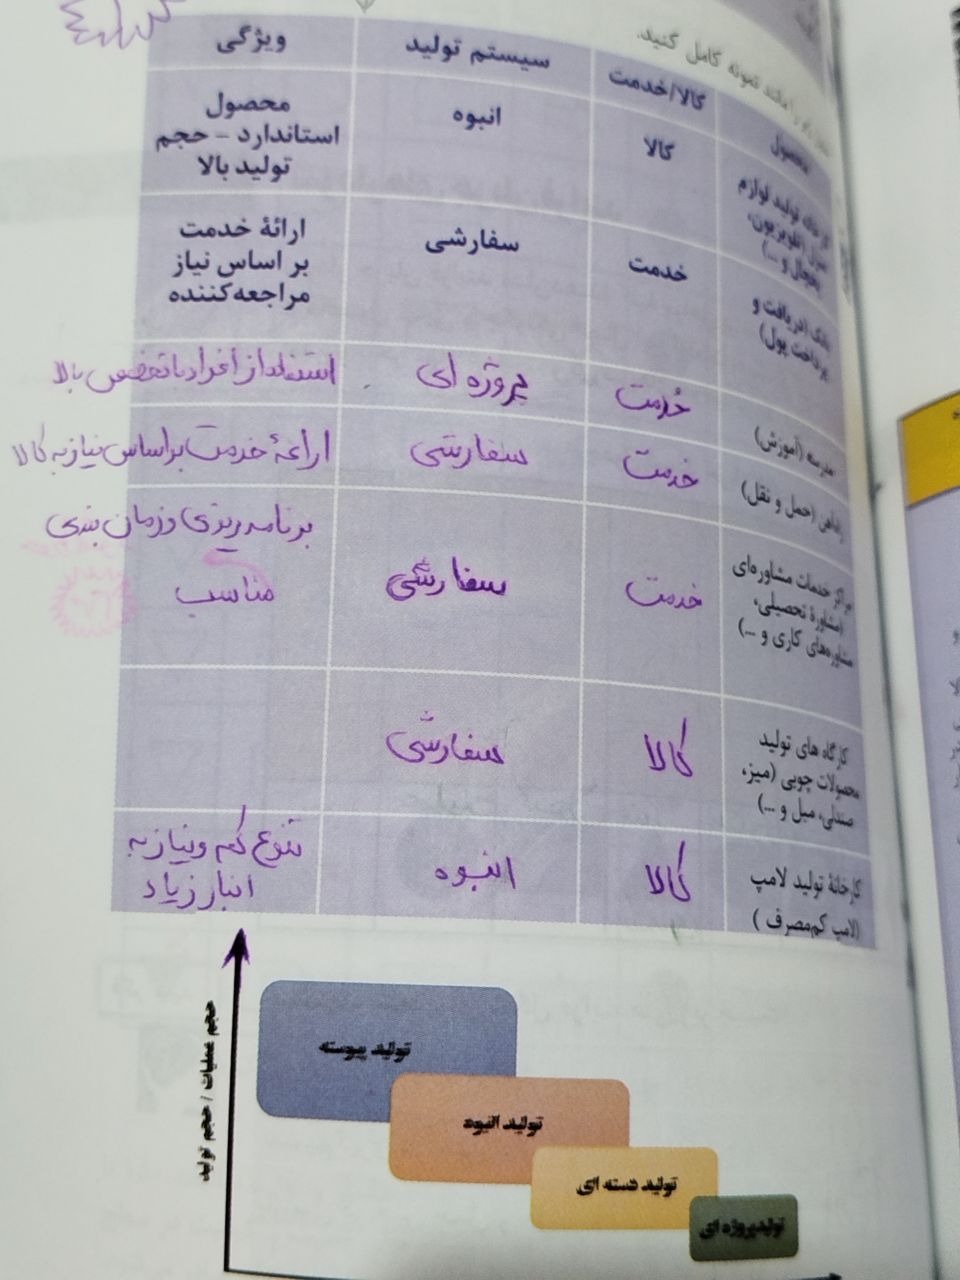 را مانند نمونه کامل کنید.
محصول
کالا/خدمت
سیستم تولید
ویژگی
تولید لوازم
(تلویزیون،
یخچال و ...)
کالا
انبوه
محصول
استاندارد - حجم
تولید بالا
بانک (دریافت و
پرداخت پول)
خدمت
سفارشی
ارائهٔ خدمت
بر اساس نیاز
مراجعه‌کننده
مدرسه (آموزش)
خدمت
پروژه ای
استفاده از افراد با تخصص بالا
(حمل و نقل)
خدمت
سفارشی
اراعهٔ خدمت براساس نیاز به کالا
مراکز خدمات مشاوره‌ای
(مشاورهٔ تحصیلی،
مشاوره‌های کاری و ...)
خدمت
سفارشی
برنامه ریزی و زمان بندی
مناسب
کارگاه های تولید
محصولات چوبی (میز،
صندلی، مبل و ...)
کالا
سفارشی
کارخانهٔ تولید لامپ
(لامپ کم‌مصرف )
کالا
انبوه
تنوع کم و نیاز به
انبار زیاد
حجم عملیات / حجم تولید
تولید پیوسته
تولید انبوه
تولید دسته ای
تولیدپروژه ای